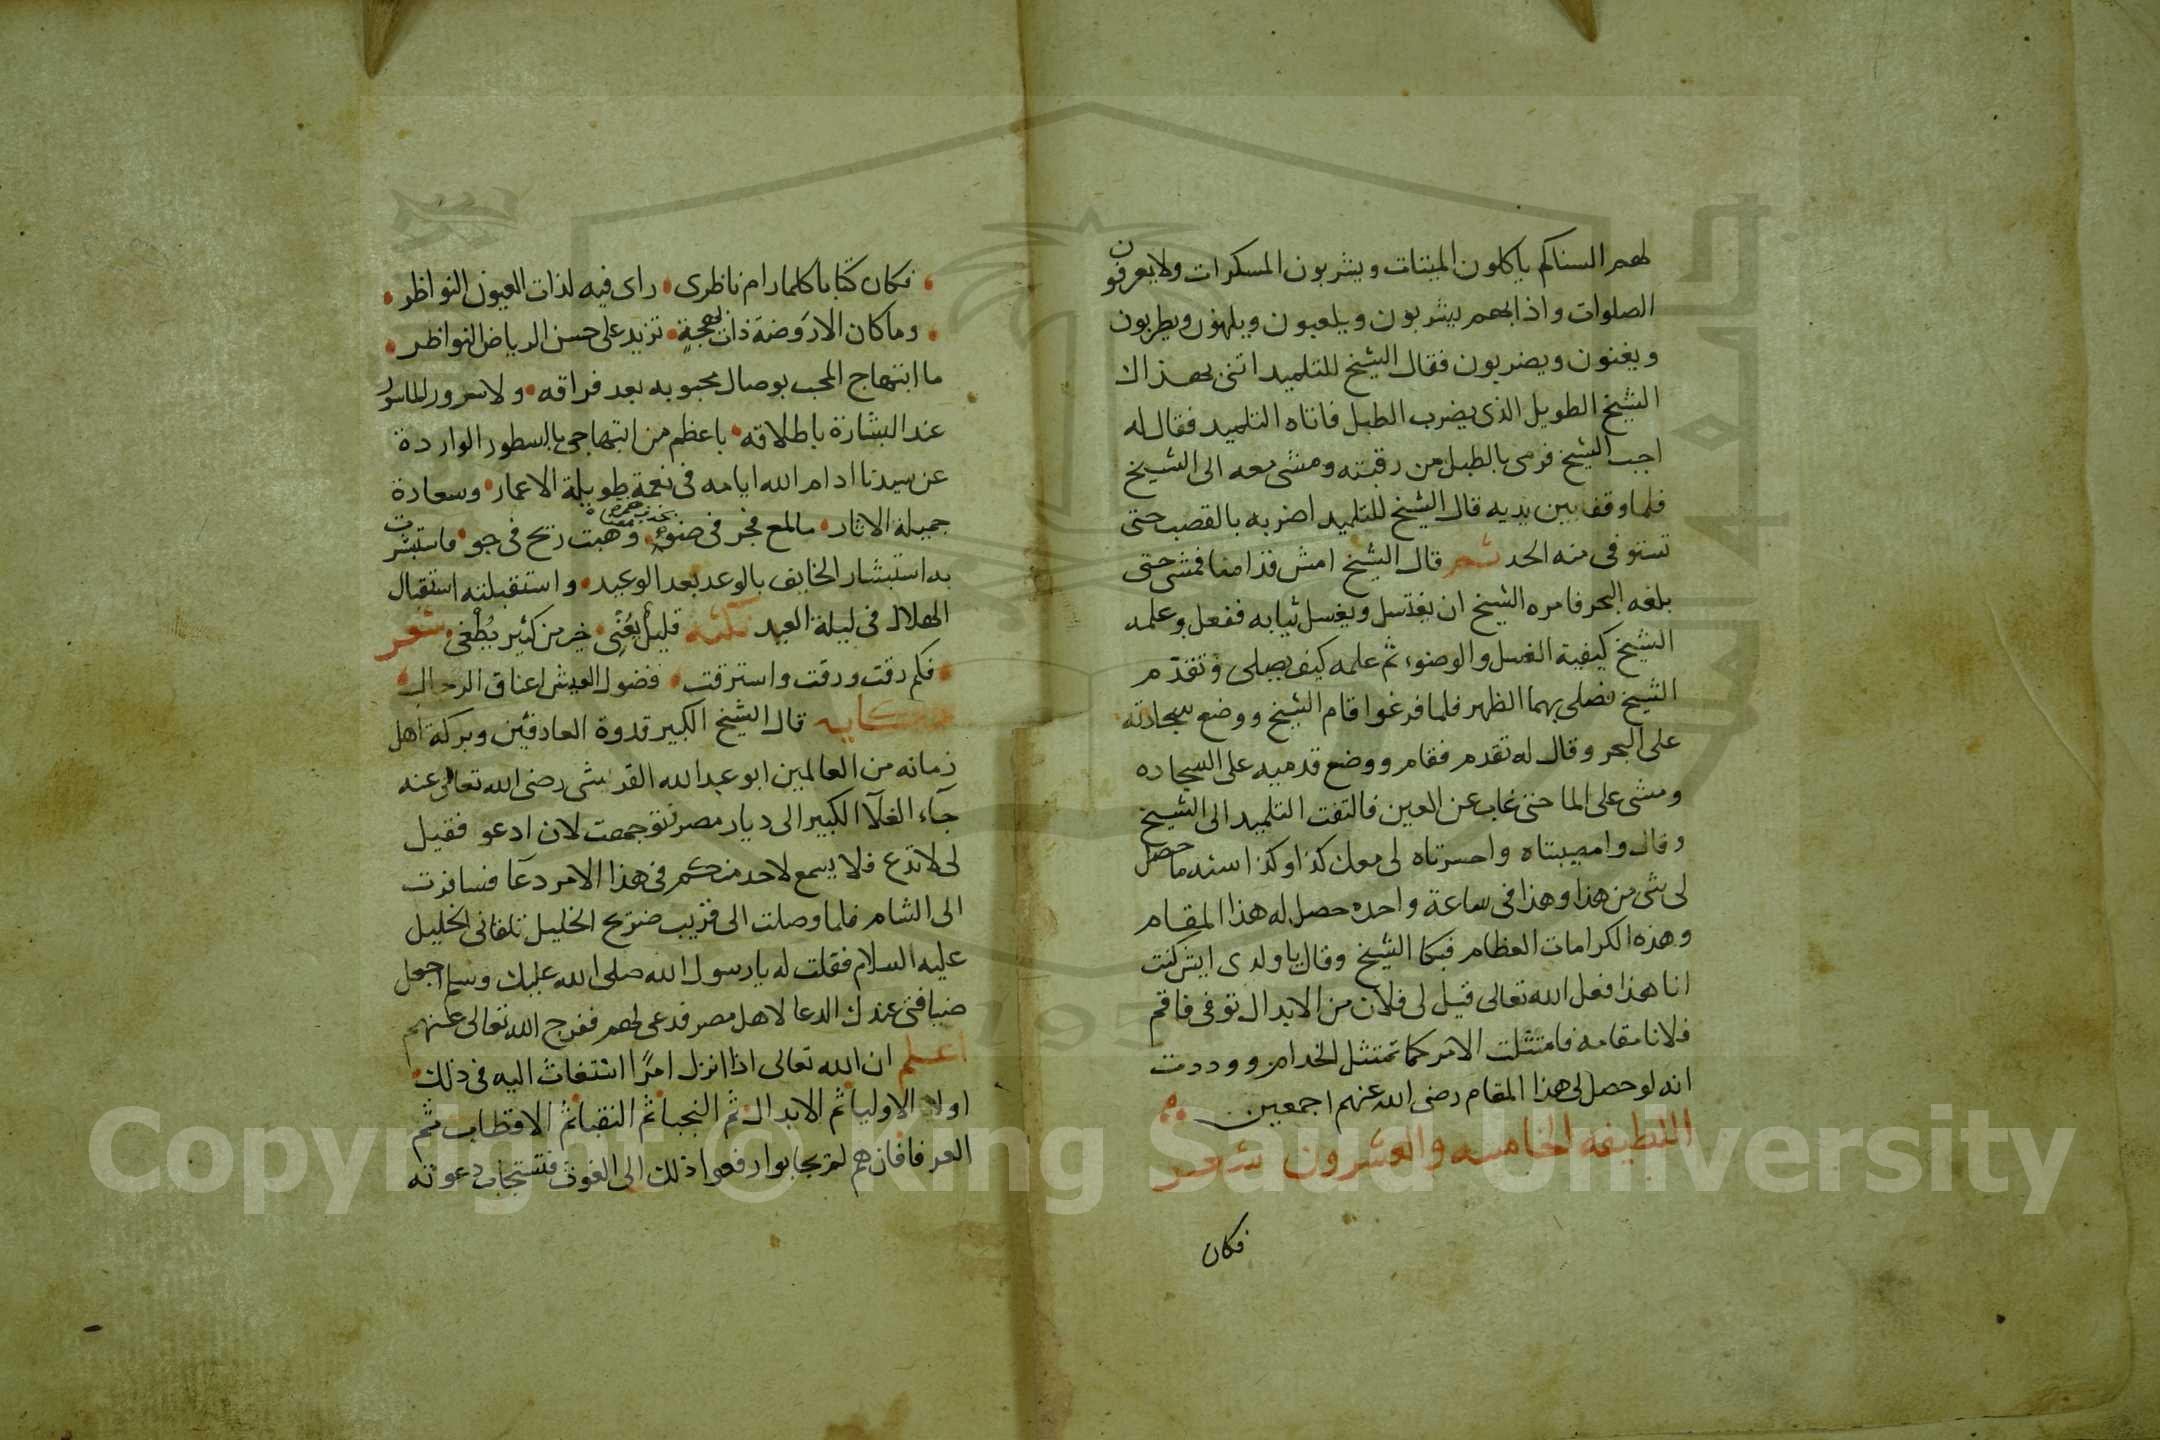 لهم السناكم ياكلون الميتات ويشربون المسكرات ولا يعرفون
الصلوات واذا بهم يشربون ويلعبون ويلهون ويطربون
ويغنون ويضربون فقال الشيخ للتلميذ اتنى بهذاك
الشيخ الطويل الذى يضرب الطبل فاتاه التلميذ فقال له
اجب الشيخ فرمى بالطبل من رقبته ومشى معه الى الشيخ
فلما وقف بين يديه قال الشيخ للتلميذ اضربه بالقصب حتى
تستوفى منه الحد شعر قال الشيخ امش قدامنا فمشى حتى
بلغه البحر فامره الشيخ ان يغتسل ويغسل ثيابه ففعل وعلمه
الشيخ كيفية الغسل والوضوء ثم علمه كيف يصلى وتقدم
الشيخ فصلى بهما الظهر فلما فرغوا قام الشيخ ووضع سجادته
على البحر وقال له تقدم فقام ووضع قدميه على السجاده
ومشى على الما حتى غاب عن العين فالتفت التلميذ الى الشيخ
وقال وامصيبتاه واحسرتاه لى معك كذا وكذا سنه ما حصل
لى شى من هذا وهذا فى ساعة واحده حصل له هذا المقام
وهذه الكرامات العظام فبكا الشيخ وقال يا ولدى ايش كنت
انا هذا فعل الله تعالى قيل لى فلان من الابدال توفى فاقم
فلانا مقامه فامتثلت الامر كما تمتثل الخدام ووددت
انه لو حصل لى هذا المقام رضى الله عنهم اجمعين
اللطيفه الخامسه والعشرون شعر
فكان
فكان كتابا كلما رام ناظرى راى فيه لذات العيون النواظر
وما كان الا روضة ذات بهجة تزيد على حسن الرياض النواظر
ما ابتهاج المحب بوصال محبوبه بعد فراقه ولا سرور الماسور
عند البشارة باطلاقه باعظم من ابتهاجى بالسطور الواردة
عن سيدنا ادام الله ايامه فى نعمة طويلة الاعمار وسعادة
جميلة الاثار ما لمع فجر فى ضوء وهبت ريح فى جو فاستبشرت
به استبشار الخايف بالوعد بعد الوعيد واستقبلته استقبال
الهلال فى ليلة العيد نكته قليل يغنى خير من كثير يطغى شعر
فكم دقت ورقت واسترقت فضول العيش اعناق الرجال
حكايه قال الشيخ الكبير قدوة العارفين وبركة اهل
زمانه من العالمين ابو عبد الله القرشى رضى الله تعالى عنه
جآء الغلآ الكبير الى ديار مصر فتوجهت لان ادعو فقيل
لى لا تدع فلا يسمع لاحد منكم فى هذا الامر دعآ فسافرت
الى الشام فلما وصلت الى قريب ضريح الخليل تلقانى الخليل
عليه السلام فقلت له يا رسول الله صلى الله عليك وسلم اجعل
ضيافتى عندك الدعا لاهل مصر فدعى لهم ففرج الله تعالى عنهم
اعلم ان الله تعالى اذا انزل امرا استغاث اليه فى ذلك
اولا الاوليا ثم الابدال ثم النجبا ثم النقبا ثم الاقطاب ثم
العرفا فان هم لم يجابوا رفعوا ذلك الى الغوث فتستجاب دعوته
Copyright © King Saud University